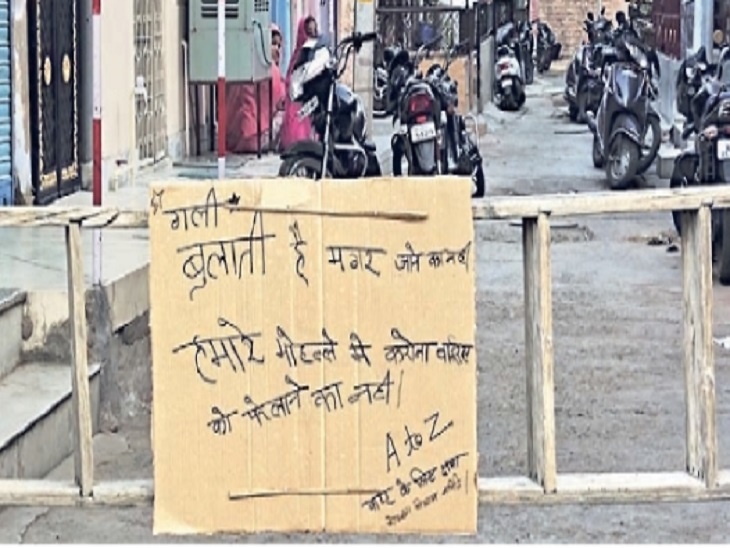 गली
बुलाती है मगर जाने का नहीं
हमारे मोहल्ले मे करोना वायरस
को फेलाने का नहीं।
A to Z
के लिए